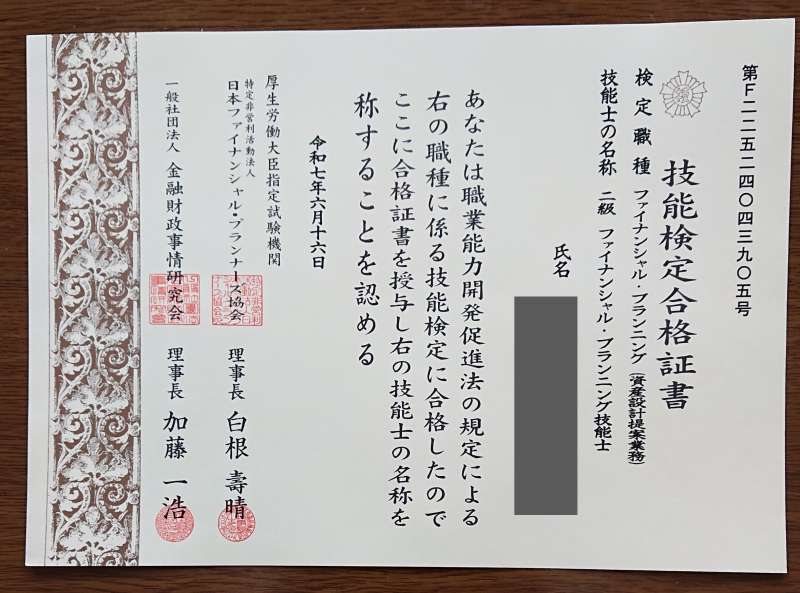 第F二二五二四〇四三九〇五号
技能検定合格証書
検定職種 ファイナンシャル・プランニング(資産設計提案業務)
技能士の名称 二級 ファイナンシャル・プランニング技能士
氏名
あなたは職業能力開発促進法の規定による
右の職種に係る技能検定に合格したので
ここに合格証書を授与し右の技能士の名称を
称することを認める
令和七年六月十六日
厚生労働大臣指定試験機関
特定非営利活動法人
日本ファイナンシャル・プランナーズ協会 理事長 白根 壽晴
一般社団法人 金融財政事情研究会 理事長 加藤 一浩